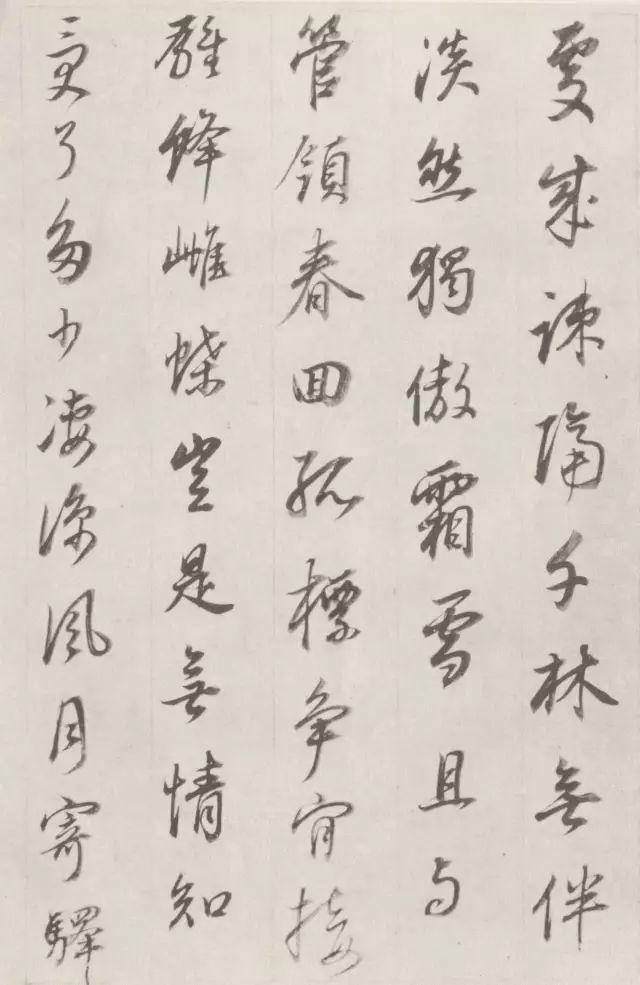 處成疎隔千林無伴
淡然獨傲霜雪且与
管領春回孤標爭肯接
雄蜂雌蝶豈是無情知
受了多少淒涼風月寄驛